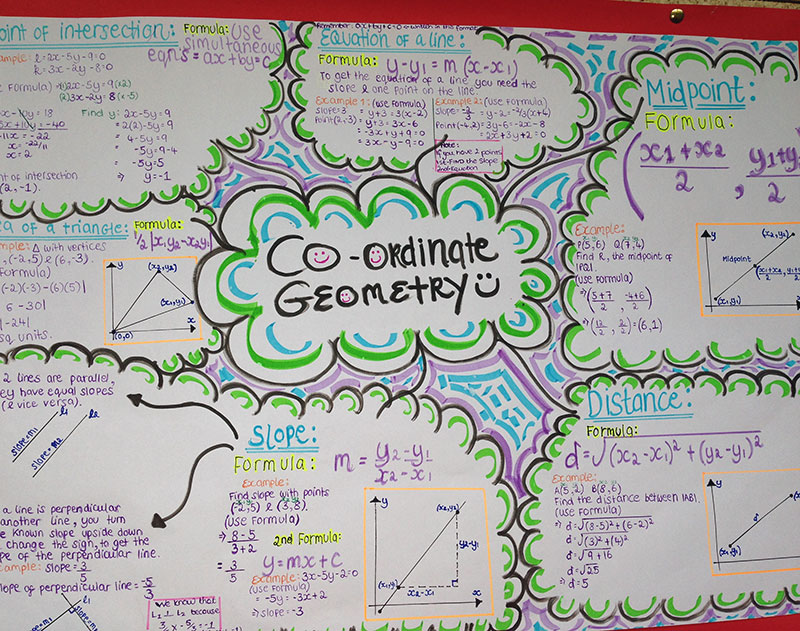 oint of intersection:
Formula: use
simultaneous
eqn's = ax+by=c
ample: l = 2x-5y=9=0
k = 3x-2y-8=0
e Formula) (1)2x-5y=9(x2)
(2)3x-2y=8(x-5)
Find y: 2x-5y=9
= 2(2)-5y=9
= 4-5y=9
5y=9-4
-5y=5
⇒ y=-1
= -22
x = -22/11
x = 2
nt of intersection
(2,-1).
Remember: ax+by+c=0
Equation of a line:
Formula: y-y1 = m (x-x1)
To get the equation of a line you need the
slope & one point on the line.
Example 1: (use formula)
slope=3
Point(2,3)
= y+3 = 3(x-2)
= y+3 = 3x-6
= -3x+y+9=0
= 3x-y-9=0
Example 2: (use Formula)
Point(-4,2)
= 2x+3y+2=0
Note:
If you have 2 points
1st-Find the slope
2nd-Equation
Midpoint:
Formula:
(x1+x2/2, y1+y
2
Example:
P(5,6) Q(7,-4)
Find R, the midpoint of
|PQ|.
(use Formula)
⇒(5+7/2, -4+6/2)
⇒(12/2, 2/2)=(6,1)
y
(x2,y2)
Midpoint
(x1,y1)
x
ea of a triangle:
Formula:
1/2 |x1y2-x2y1|
mple: Δ with vertices
, (-2,5) & (6,-3).
Formula)
(-2)(-3)-(6)(5)|
6-30|
|-24|
sq. units.
y
(x2,y2)
(x1,y1)
(0,0)
x
Co-ordinate
Geometry
2 lines are parallel,
hey have equal slopes
(& vice versa).
l1
l2
slope=m1
slope=m2
a line is perpendicular
another line, you turn
e known slope upside down
change the sign, to get the
ope of the perpendicular line.
ample: slope = 3/5
lope of perpendicular line = -5/3
l1
we know that
L1 ⊥ L2 because
3/5 x -5/3 = -1
Slope:
Formula: m = y2-y1/x2-x1
Example:
Find slope with points
(-2,5) & (3,8).
(use Formula)
⇒ 8-5/3+2
= 3/5
2nd Formula:
y=mx+c
Example: 3x-5y-2=0
(use Formula)
= -5y = -3x+2
⇒ slope = -3
y
(x2,y2)
y2-y1
(x1,y1)
x2-x1
x
Distance:
Formula:
d=√(x2-x1)²+(y2-y1)²
Example:
A(5,2) B(8,6)
Find the distance between |AB|.
(use formula)
⇒ d=√(8-5)²+(6-2)²
⇒ d=√(3)²+(4)²
⇒ d=√9+16
⇒ d=√25
⇒ d=5
y
(x
d
(x1,y1)